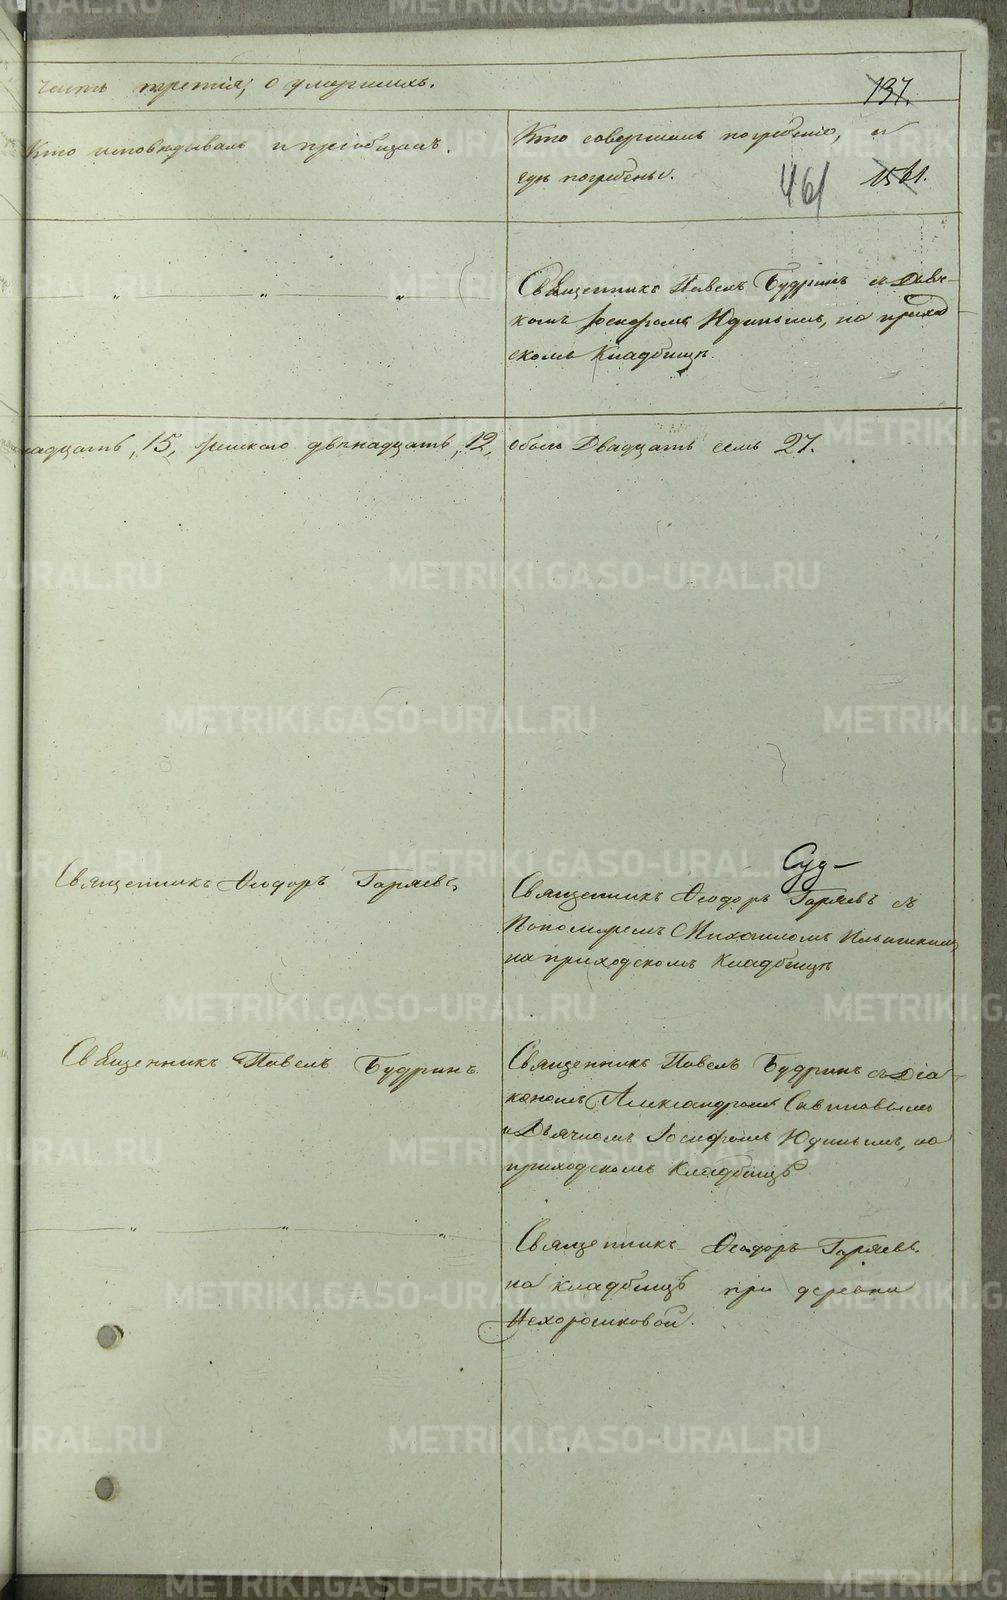 часть третія, о умершихъ.
137.
Кто исповѣдывалъ и пріобщалъ.
Кто совершалъ погребеніе, и
гдѣ погребены.
461
1561.
Священникъ Павелъ Будринъ съ Дьяч-
комъ Іосифомъ Юдинымъ, на приход
скомъ Кладбищѣ.
надцать, 15, женскаго двѣнадцать, 12,
обоего Двадцать семь 27.
Суд-
Священникъ Ѳеодоръ Гаряевъ,
Священникъ Ѳеодоръ Гаряевъ съ
Пономаремъ Михаиломъ
на приходскомъ Кладбищѣ
Священникъ Павелъ Будринъ
Священникъ Павелъ Будринъ съ Діа-
кономъ Александромъ Савиновымъ
и Дьячкомъ Іосифомъ Юдинымъ, на
приходскомъ Кладбищѣ
Священникъ Ѳеодоръ Гаряевъ.
на кладбищѣ при деревни
Нехорошковой.
METRIKI.GASO-URAL.RU